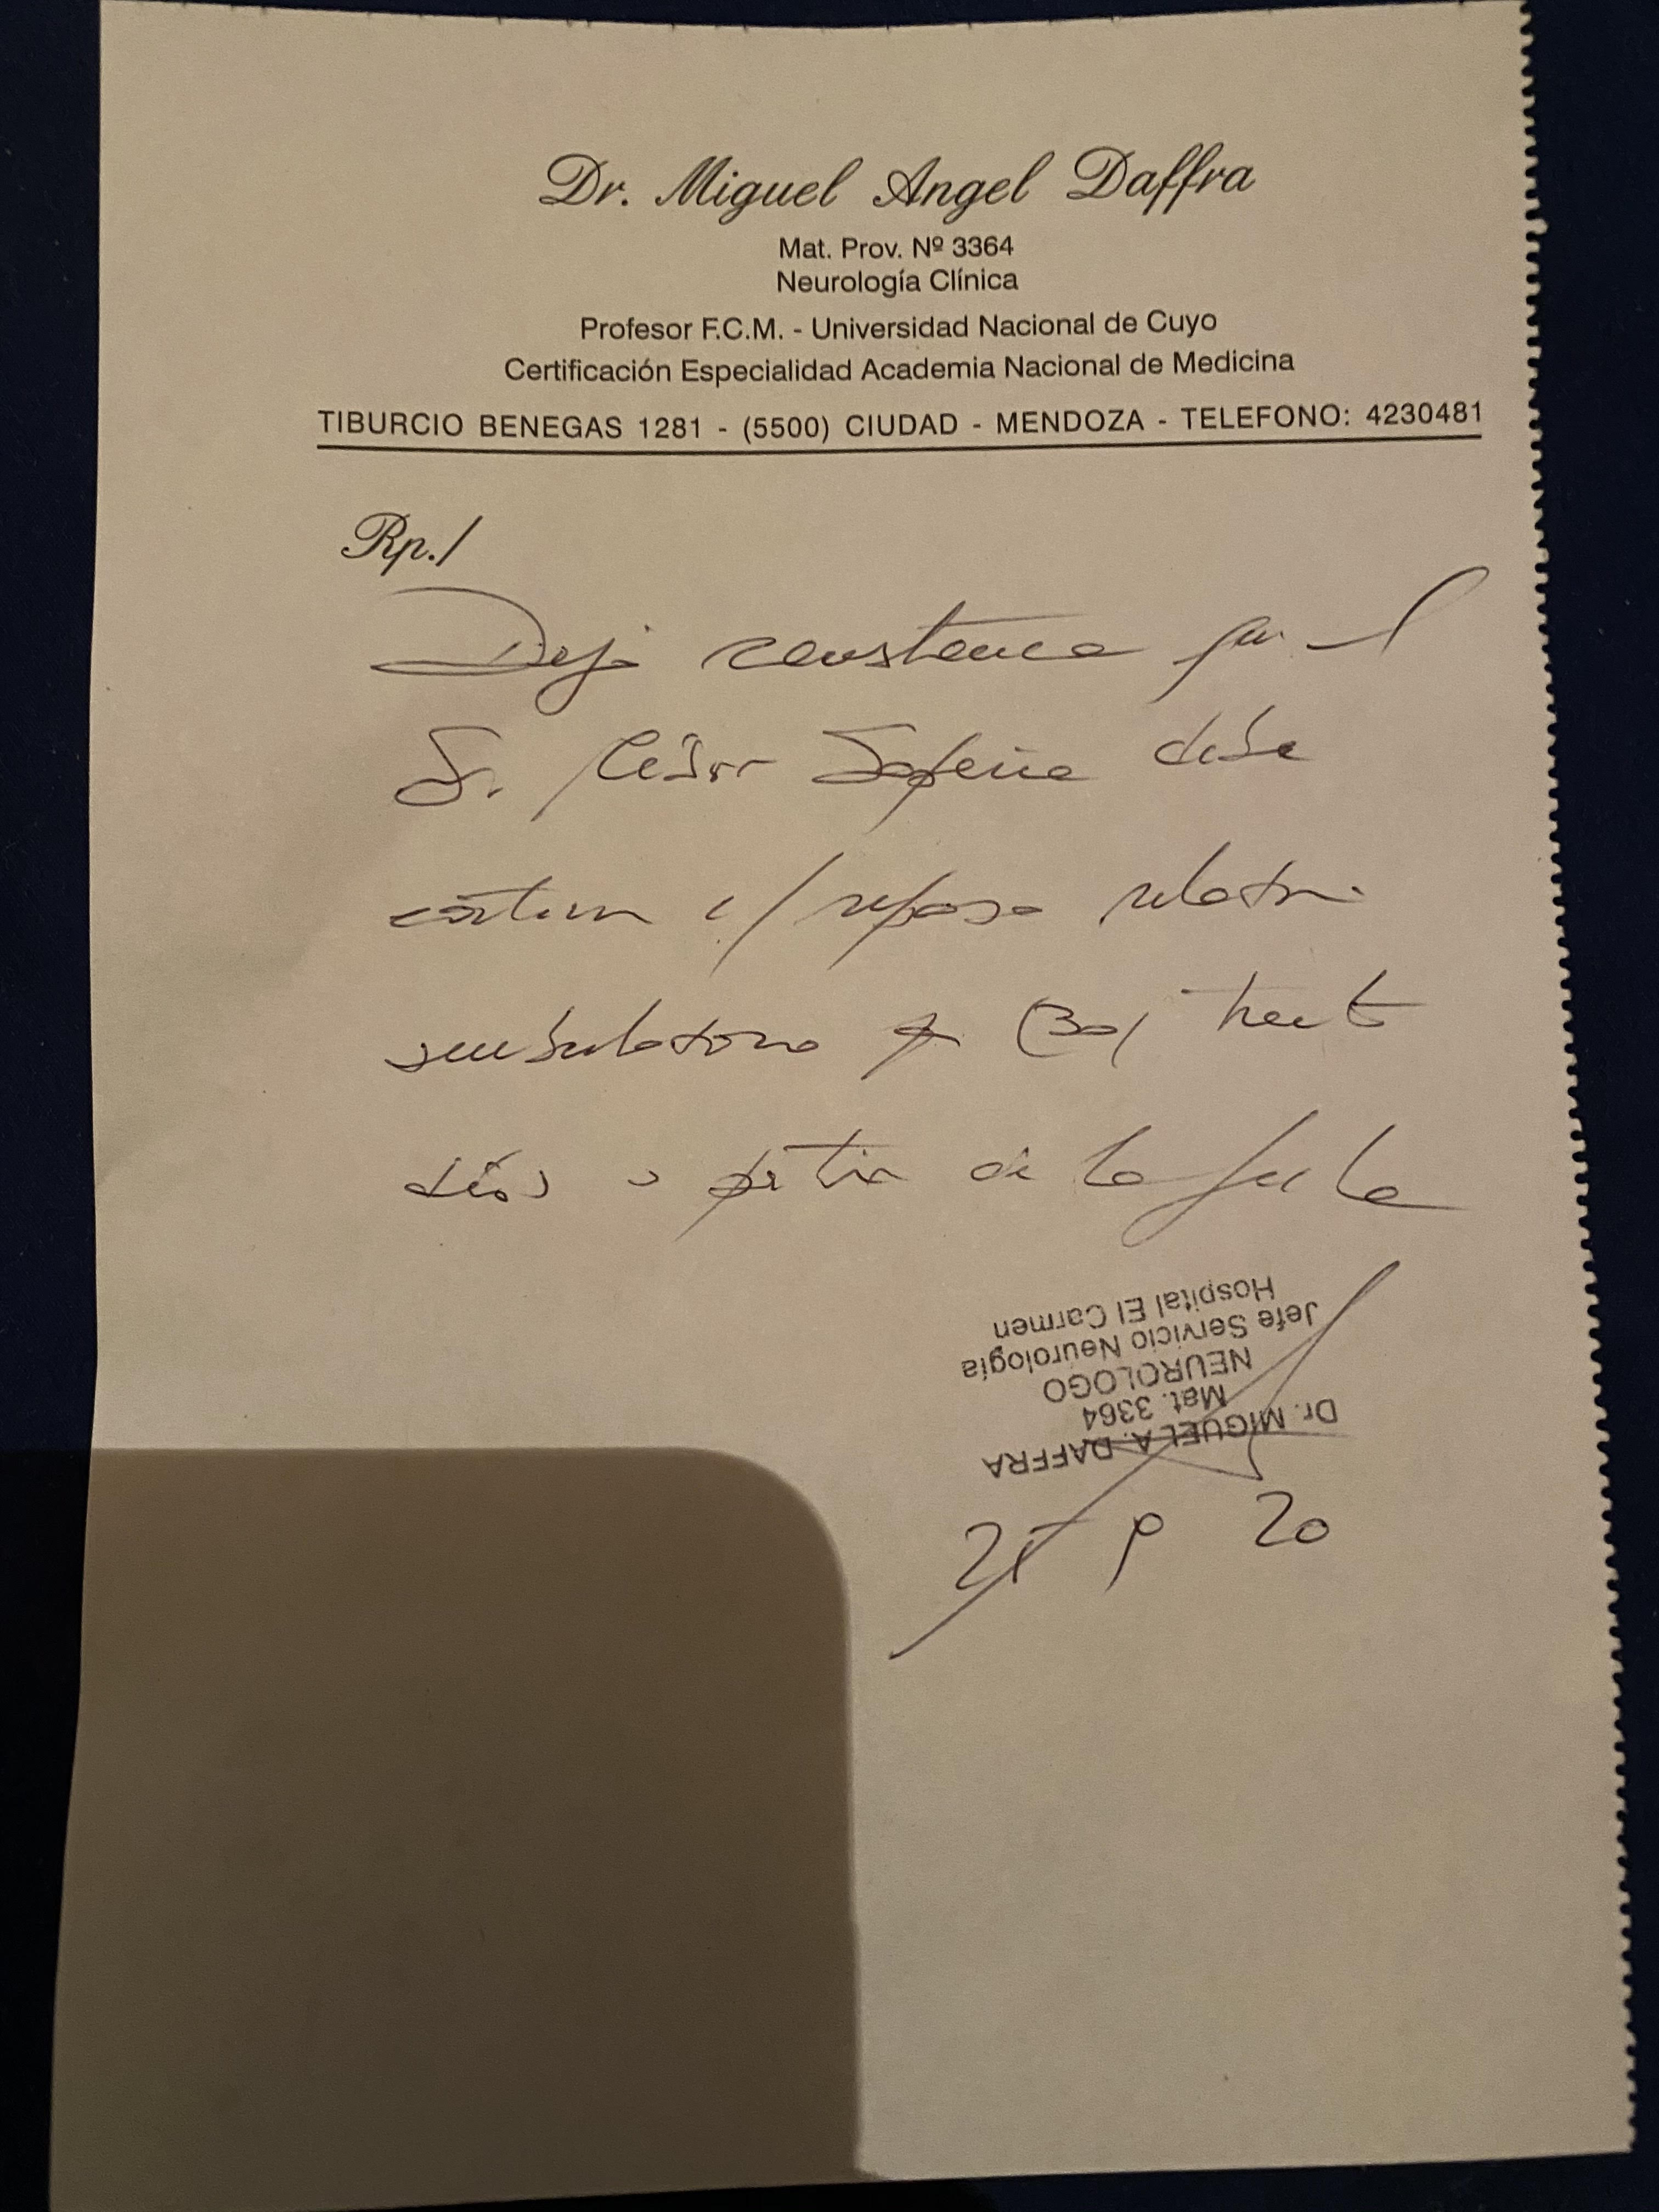 Dr. Miguel Angel Daffra
Mat. Prov. Nº 3364
Neurología Clínica
Profesor F.C.M. - Universidad Nacional de Cuyo
Certificación Especialidad Academia Nacional de Medicina
TIBURCIO BENEGAS 1281 - (5500) CIUDAD - MENDOZA - TELEFONO: 4230481
Rp./
Dejo constancia que el
Sr. César debe
c/ reposo relativo
ambulatorio (30) treinta
días a partir de la fecha
Dr. MIGUEL A. DAFFRA
Mat. 3364
NEUROLOGO
Jefe Servicio Neurología
Hospital El Carmen
20